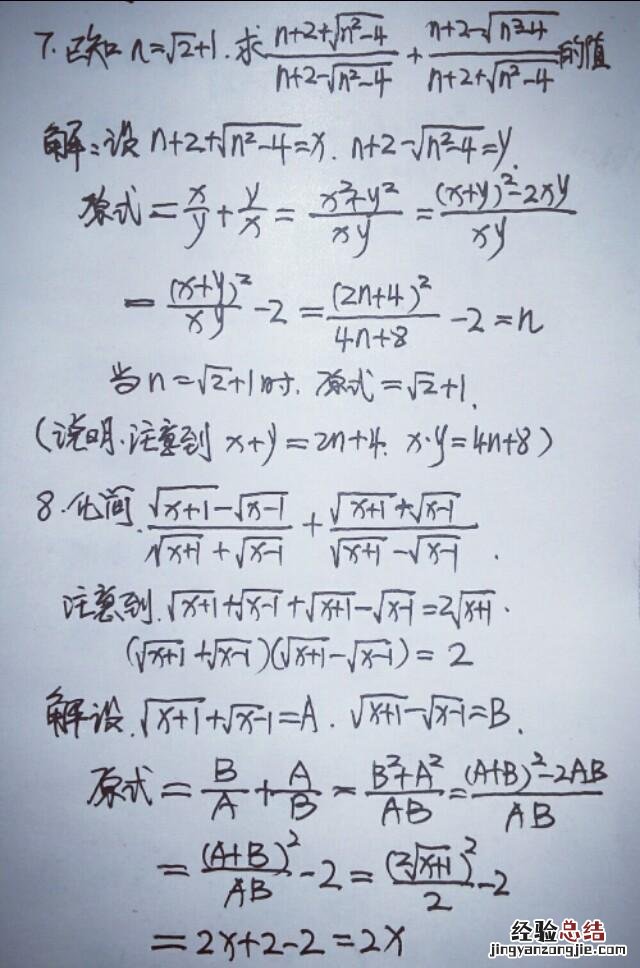 7. 已知 n=√2+1. 求 (n+2+√(n²-4))/(n+2-√(n²-4)) + (n+2-√(n²-4))/(n+2+√(n²-4)) 的值
解:设 n+2+√(n²-4)=x. n+2-√(n²-4)=y.
原式= x/y + y/x = (x²+y²)/(xy) = ((x+y)²-2xy)/(xy)
= (x+y)²/(xy) -2 = (2n+4)²/(4n+8) -2 = n
当 n=√2+1时. 原式=√2+1.
(说明.注意到 x+y=2n+4. x·y=4n+8)
8.化间. (√(x+1)-√(x-1))/(√(x+1)+√(x-1)) + (√(x+1)+√(x-1))/(√(x+1)-√(x-1)).
注意到.√(x+1)+√(x-1)+√(x+1)-√(x-1)=2√(x+1).
(√(x+1)+√(x-1))(√(x+1)-√(x-1))=2
解设.√(x+1)+√(x-1)=A. √(x+1)-√(x-1)=B.
原式= B/A + A/B = (B²+A²)/(AB) = ((A+B)²-2AB)/(AB)
= (A+B)²/(AB) -2 = (2√(x+1))²/2 -2
=2x+2-2=2x
经验总结
jingyanzongjie.com